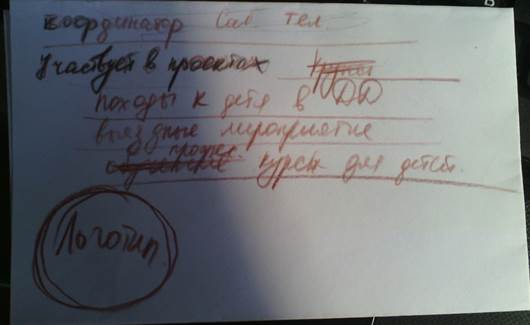 координатор Саб тел
Участвует в проектах
походы к детя в ДД
выездные мероприятие
профес.
курсы для детей.
Логотип